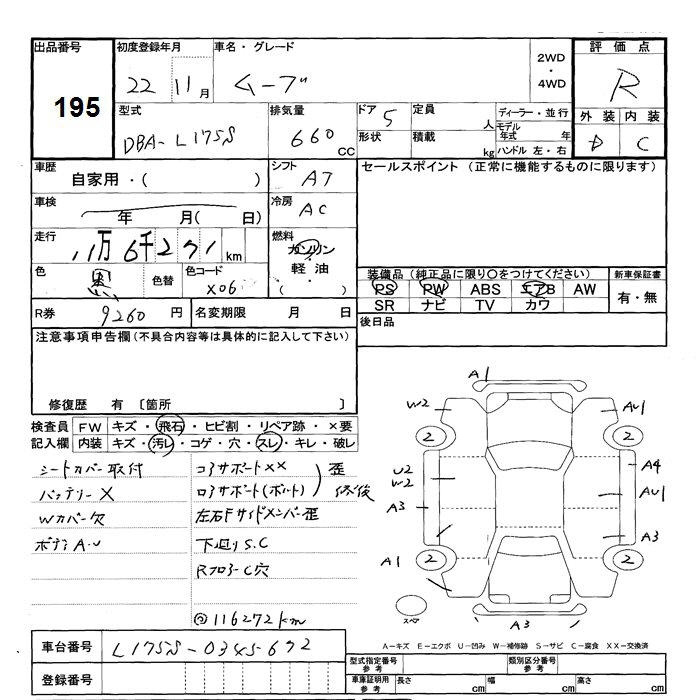 出品番号 初度登録年月 車名・グレード 2WD ・ 4WD 評価点
195 22 11月 ムーブ R
型式 排気量 ドア 定員 ディーラー・並行 外装 内装
DBA-L175S 660 CC 5 人 モデル年式 年 D C
形状 積載 kg ハンドル 左・右
車歴 シフト セールスポイント (正常に機能するものに限ります)
自家用・( ) AT
車検 冷房
年 月( 日) AC
走行 燃料
11万6千271km ガソリン・軽油 ( )
色 色替 色コード 装備品 (純正品に限り○をつけてください) 新車保証書
黒 X06 PS PW ABS エアB AW 有・無
SR ナビ TV カワ
R券 9260円 名変期限 月 日 後日品
注意事項申告欄 (不具合内容等は具体的に記入して下さい)
修復歴 有 〔箇所 〕
検査員 FW キズ・飛石・ヒビ割・リペア跡・×要
記入欄 内装 キズ・汚レ・コゲ・穴・スレ・キレ・破レ
シートカバー取付 コアサポートXX 歪
バッテリーX ロアサポート(ボルト) 修復
Wカバー欠 左右Fサイドメンバー歪
ボディA・U 下廻りS.C
RフロアーC穴
◎116272km
A1
W2 AU1
2 2
U2 A4
W2 AU1
A3 A3
A1 2 2
スペア A3
A-キズ E-エクボ U-凹み W-補修跡 S-サビ C-腐食 XX-交換済
車台番号 L175S-0345672
型式指定番号 参考 類別区分番号 参考
登録番号 車庫証明用 参考 長さ cm 幅 cm 高さ cm